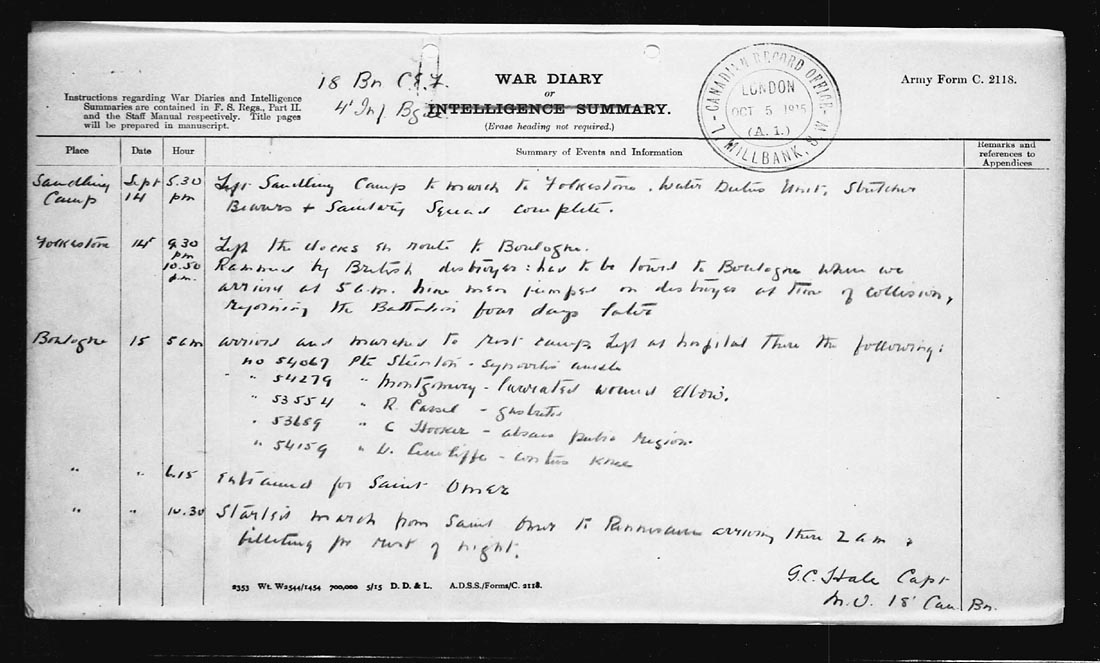 18 Bn C.E.F.
4 Inf Bgde
WAR DIARY
or
INTELLIGENCE SUMMARY.
(Erase heading not required.)
Army Form C. 2118.
Instructions regarding War Diaries and Intelligence
Summaries are contained in F. S. Regs., Part II.
and the Staff Manual respectively. Title pages
will be prepared in manuscript.
CANADIAN RECORD OFFICE
LONDON
OCT 5 1915
(A. 1.)
MILLBANK, S.W.
Place Date Hour Summary of Events and Information Remarks and
references to
Appendices
Sandling Sept 5.30 Left Sandling Camp to march to Folkestone. Water Duties Unit, Stretcher
Camp 14 pm Bearers + Sanitary Squad complete.
Folkestone 14 9.30 pm Left the docks en route to Boulogne.
10.50 pm Rammed by British destroyer: had to be towed to Boulogne where we
arrived at 5 a.m. Nine men jumped on destroyer at time of collision,
rejoining the Battalion four days later
Boulogne 15 5 am arrived and marched to rest camp. Left at hospital there the following:
no 54067 Pte - synovitis ankle
" 54279 " Montgomery - lacerated wound Elbow.
" 53554 " R. Cassel - gastritis
" 53659 " C Hooker - abscess pubic region.
" 54159 " Cunliffe - knee
" " 6.15 Entrained for Saint Omer
" " 10.30 Started march from Saint Omer to arriving there 2 am &
billeting for rest of night.
G.C. Hale Capt
M.O. 18 Can Bn.
2353 Wt. W2544/1454 700,000 5/15 D. D. & L. A.D.S.S./Forms/C. 2118.